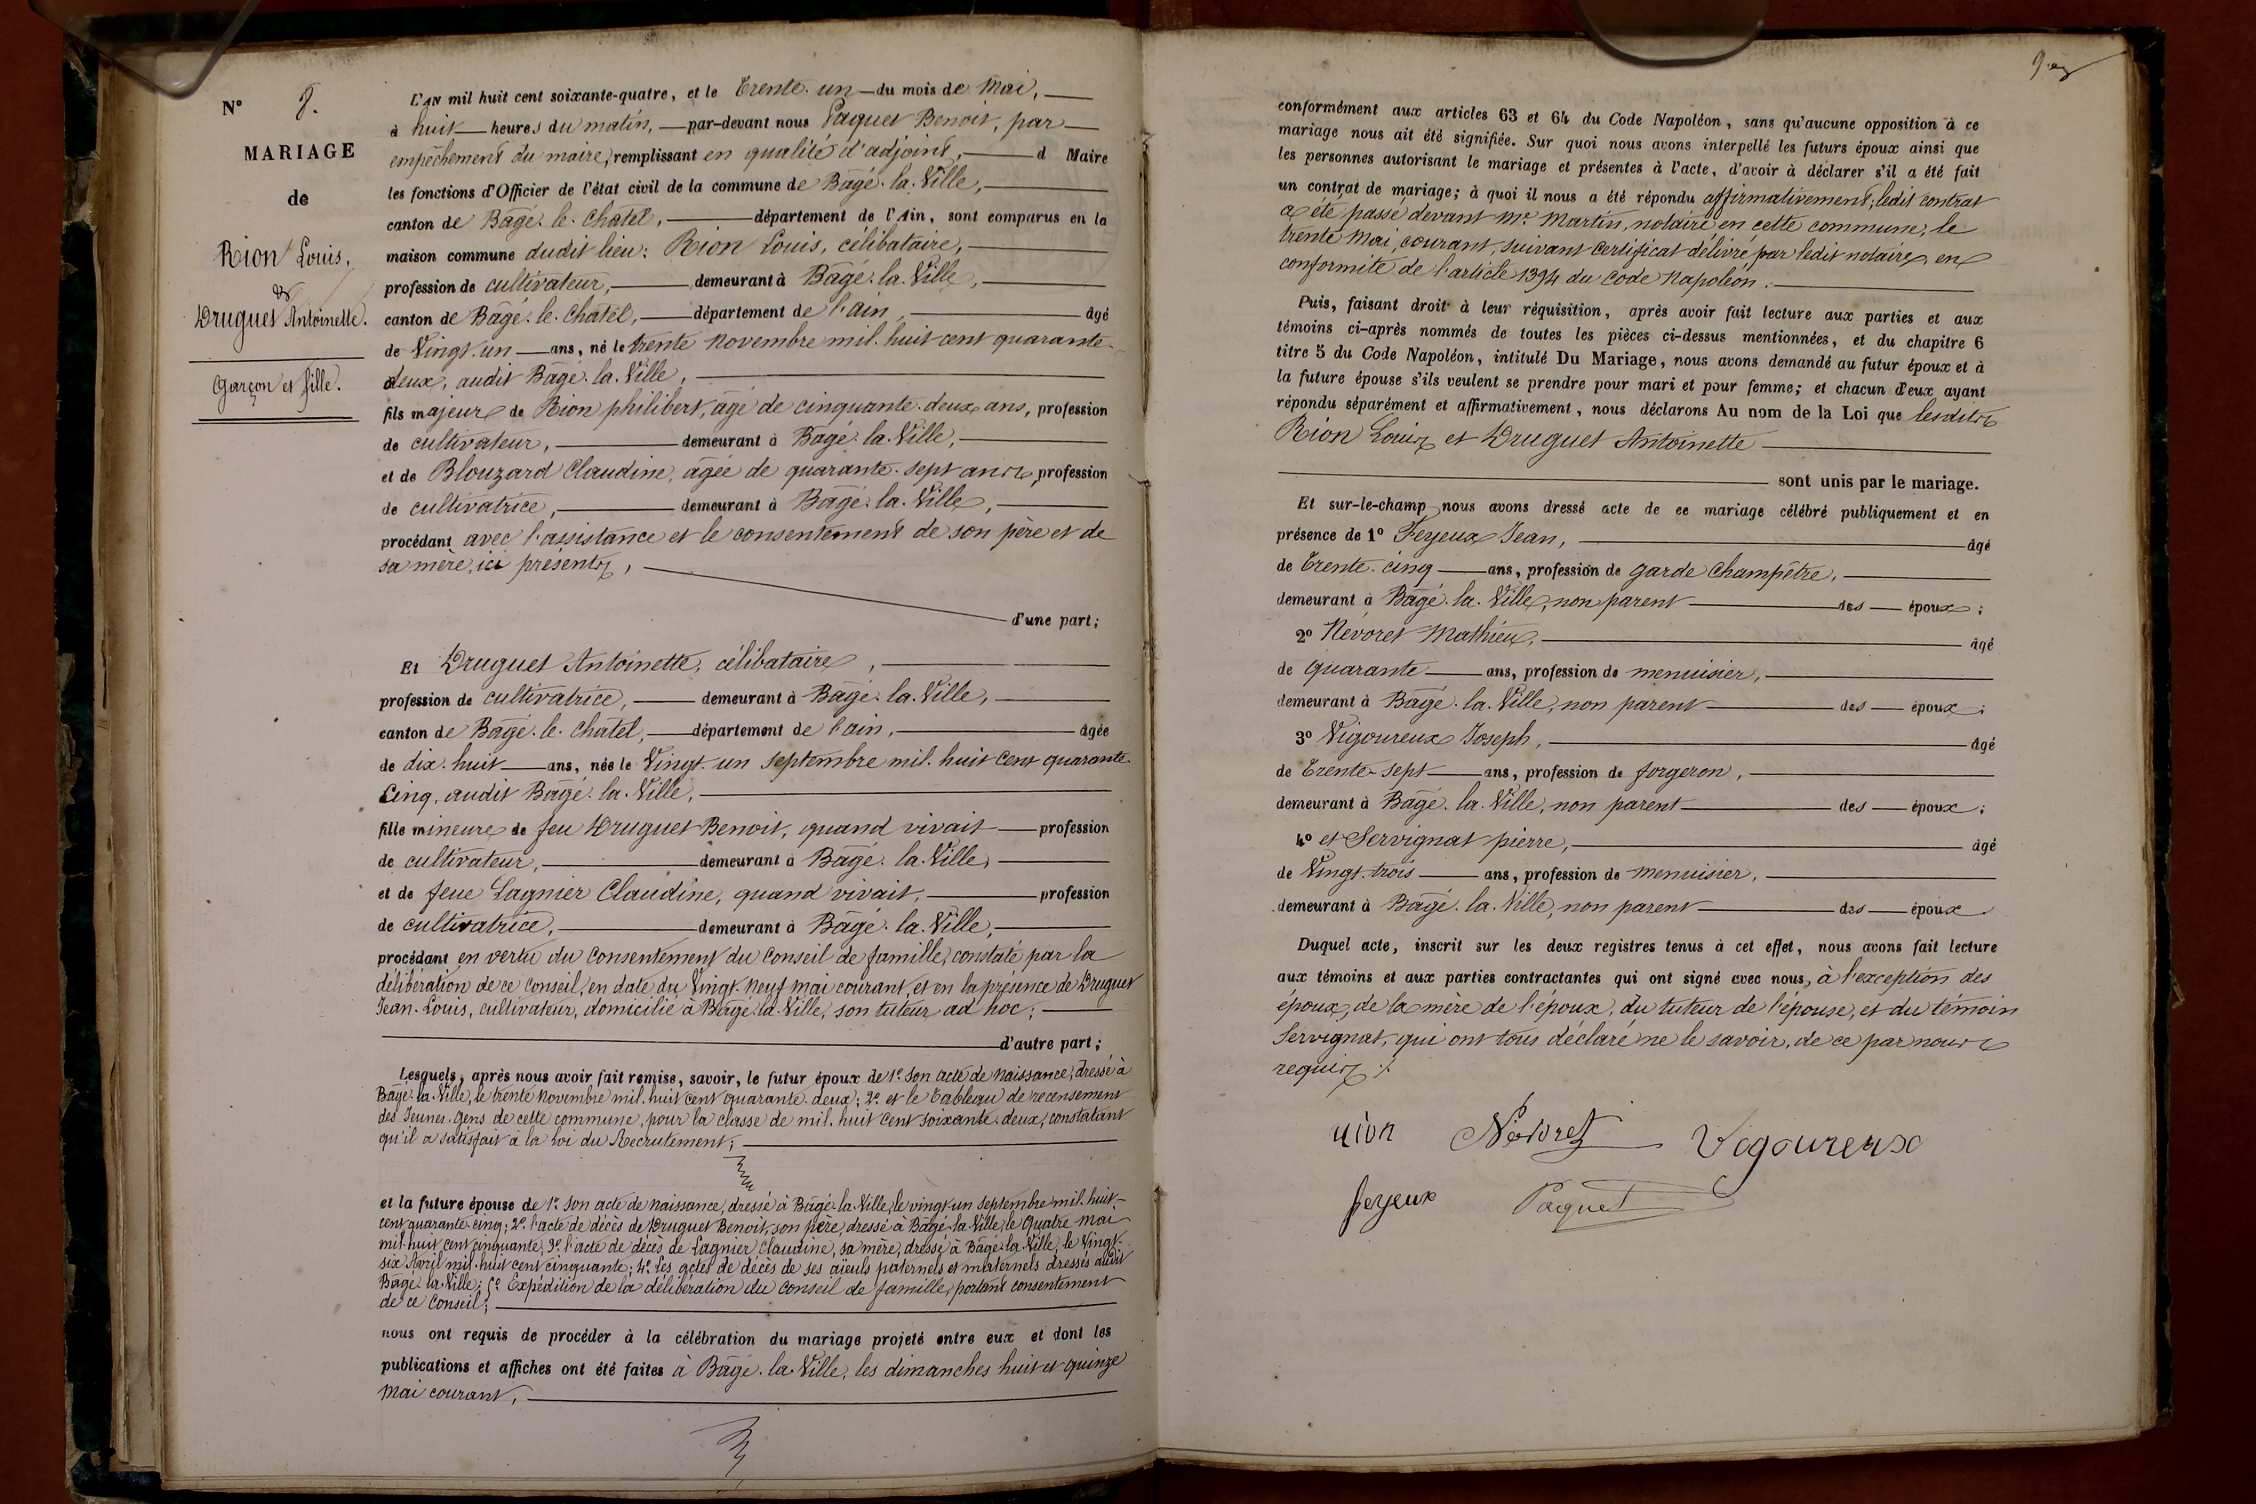 N° 9.
MARIAGE
de
Rion Louis,
&
Druguet Antoinette.
Garçon et fille.
L'AN mil huit cent soixante-quatre, et le Trente-un du mois de Mai,
à huit heures du matin, par-devant nous Paquet Benoit, par
empêchement du maire, remplissant en qualité d'adjoint, d Maire
les fonctions d'Officier de l'état civil de la commune de Bâgé-la-Ville,
canton de Bâgé-le-Chatel, département de l'Ain, sont comparus en la
maison commune dudit lieu: Rion Louis, célibataire,
profession de cultivateur, demeurant à Bâgé-la-Ville,
canton de Bâgé-le-Chatel, département de l'ain, âgé
de Vingt-un ans, né le trente novembre mil-huit cent quarante-
deux, audit Bâgé-la-Ville,
fils majeur de Rion philibert, âgé de cinquante-deux ans, profession
de cultivateur, demeurant à Bâgé-la-Ville,
et de Blouzard Claudine, âgée de quarante-sept ans, profession
de cultivatrice, demeurant à Bâgé-la-Ville,
procédant avec l'assistance et le consentement de son père et de
sa mère, ici présents,
d'une part;
Et Druguet Antoinette, célibataire,
profession de cultivatrice, demeurant à Bâgé-la-Ville,
canton de Bâgé-le-Chatel, département de l'ain, âgée
de dix-huit ans, née le Vingt-un Septembre mil-huit cent quarante-
Cinq, audit Bâgé-la-Ville,
fille mineure de feu Druguet Benoit, quand vivait profession
de cultivateur, demeurant à Bâgé-la-Ville,
et de feue Lagnier Claudine, quand vivait, profession
de cultivatrice, demeurant à Bâgé-la-Ville,
procédant en vertu du consentement du conseil de famille, constaté par la
délibération de ce conseil, en date du Vingt-neuf mai courant, et en la présence de Druguet
Jean-Louis, cultivateur, domicilié à Bâgé-la-Ville, son tuteur ad hoc;
d'autre part;
Lesquels, après nous avoir fait remise, savoir, le futur époux de 1° Son acte de Naissance, dressé à
Bâgé-la-Ville, le trente novembre mil-huit cent quarante-deux; 2° et le Tableau de recensement
des Jeunes-gens de cette commune, pour la classe de mil-huit cent soixante-deux, constatant
qu'il a satisfait à la Loi du Recrutement;
et la future épouse de 1° Son acte de Naissance, dressé à Bâgé-la-Ville, le vingt-un Septembre mil-huit-
cent quarante-cinq; 2° l'acte de décès de Druguet Benoit, son père, dressé à Bâgé-la-Ville, le Quatre mai
mil-huit cent cinquante; 3° l'acte de décès de Lagnier Claudine, sa mère, dressé à Bâgé-la-Ville, le Vingt-
six Avril mil-huit cent cinquante; 4° les actes de décès de ses aïeuls paternels et maternels dressés audit
Bâgé-la-Ville; 5° Expédition de la délibération du conseil de famille, portant consentement
de ce Conseil;
nous ont requis de procéder à la célébration du mariage projeté entre eux et dont les
publications et affiches ont été faites à Bâgé-la-Ville, les dimanches huit et quinze
mai courant,
conformément aux articles 63 et 64 du Code Napoléon, sans qu'aucune opposition à ce
mariage nous ait été signifiée. Sur quoi nous avons interpellé les futurs époux ainsi que
les personnes autorisant le mariage et présentes à l'acte, d'avoir à déclarer s'il a été fait
un contrat de mariage; à quoi il nous a été répondu affirmativement; ledit contrat
a été passé devant Me Martin, notaire en cette commune, le
trente Mai courant, suivant certificat délivré par ledit notaire, en
conformité de l'article 1394 du Code Napoléon.
Puis, faisant droit à leur réquisition, après avoir fait lecture aux parties et aux
témoins ci-après nommés de toutes les pièces ci-dessus mentionnées, et du chapitre 6
titre 5 du Code Napoléon, intitulé Du Mariage, nous avons demandé au futur époux et à
la future épouse s'ils veulent se prendre pour mari et pour femme; et chacun d'eux ayant
répondu séparément et affirmativement, nous déclarons Au nom de la Loi que lesdits
Rion Louis et Druguet Antoinette
sont unis par le mariage.
Et sur-le-champ nous avons dressé acte de ce mariage célébré publiquement et en
présence de 1° Feyeux Jean, âgé
de Trente-cinq ans, profession de garde Champêtre,
demeurant à Bâgé-la-Ville, non parent des époux;
2° Névoret Mathieu, âgé
de Quarante ans, profession de menuisier,
demeurant à Bâgé-la-Ville, non parent des époux;
3° Vigoureux Joseph, âgé
de Trente-sept ans, profession de forgeron,
demeurant à Bâgé-la-Ville, non parent des époux;
4° et Servignat pierre, âgé
de Vingt-trois ans, profession de menuisier,
demeurant à Bâgé-la-Ville, non parent des époux.
Duquel acte, inscrit sur les deux registres tenus à cet effet, nous avons fait lecture
aux témoins et aux parties contractantes qui ont signé avec nous, à l'exception des
époux, de la mère de l'époux, du tuteur de l'épouse, et du témoin
Servignat, qui ont tous déclaré ne le savoir, de ce par nous
requis./.
rion Névoret Vigoureux
feyeux Paquet